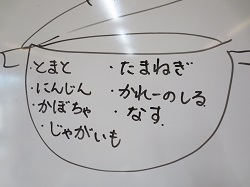 ・とまと
・にんじん
・かぼちゃ
・じゃがいも
・たまねぎ
・かれーのしる
・なす